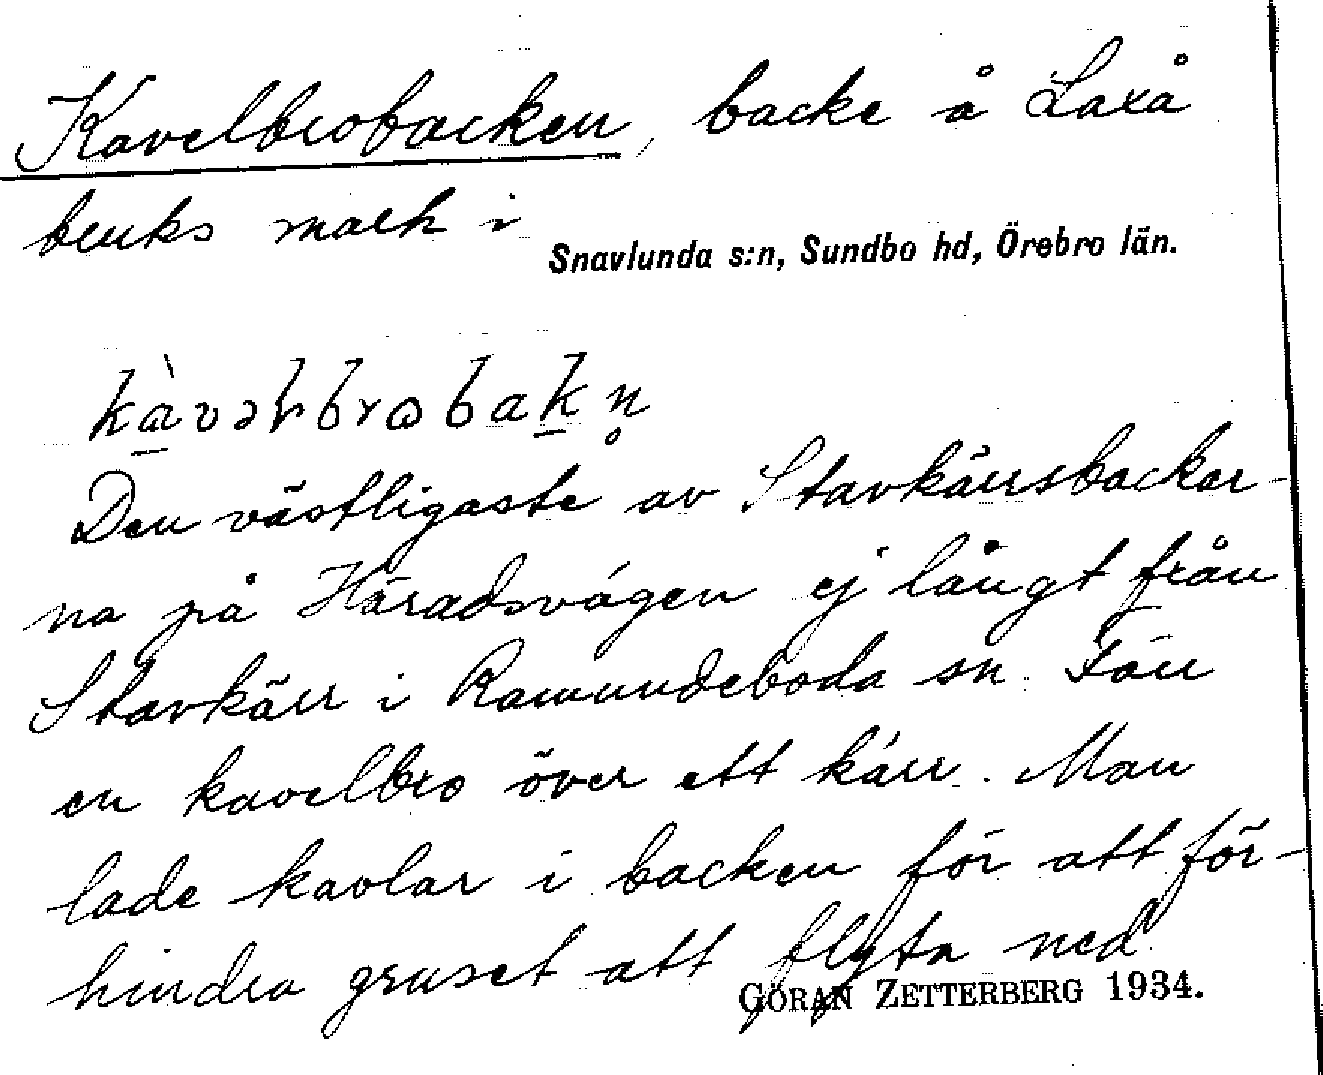 Kavelbrobacken, backe å Laxå
bruks mark i
Snavlunda s:n, Sundbo hd, Örebro län.
Den västligaste av Stavkärrsbackar-
na på Häradsvägen ej långt från
Stavkärr i Ramundeboda sn. Förr
en kavelbro över ett kärr. Man
lade kavlar i backen för att för-
hindra gruset att flyta ned.
GÖRAN ZETTERBERG 1934.